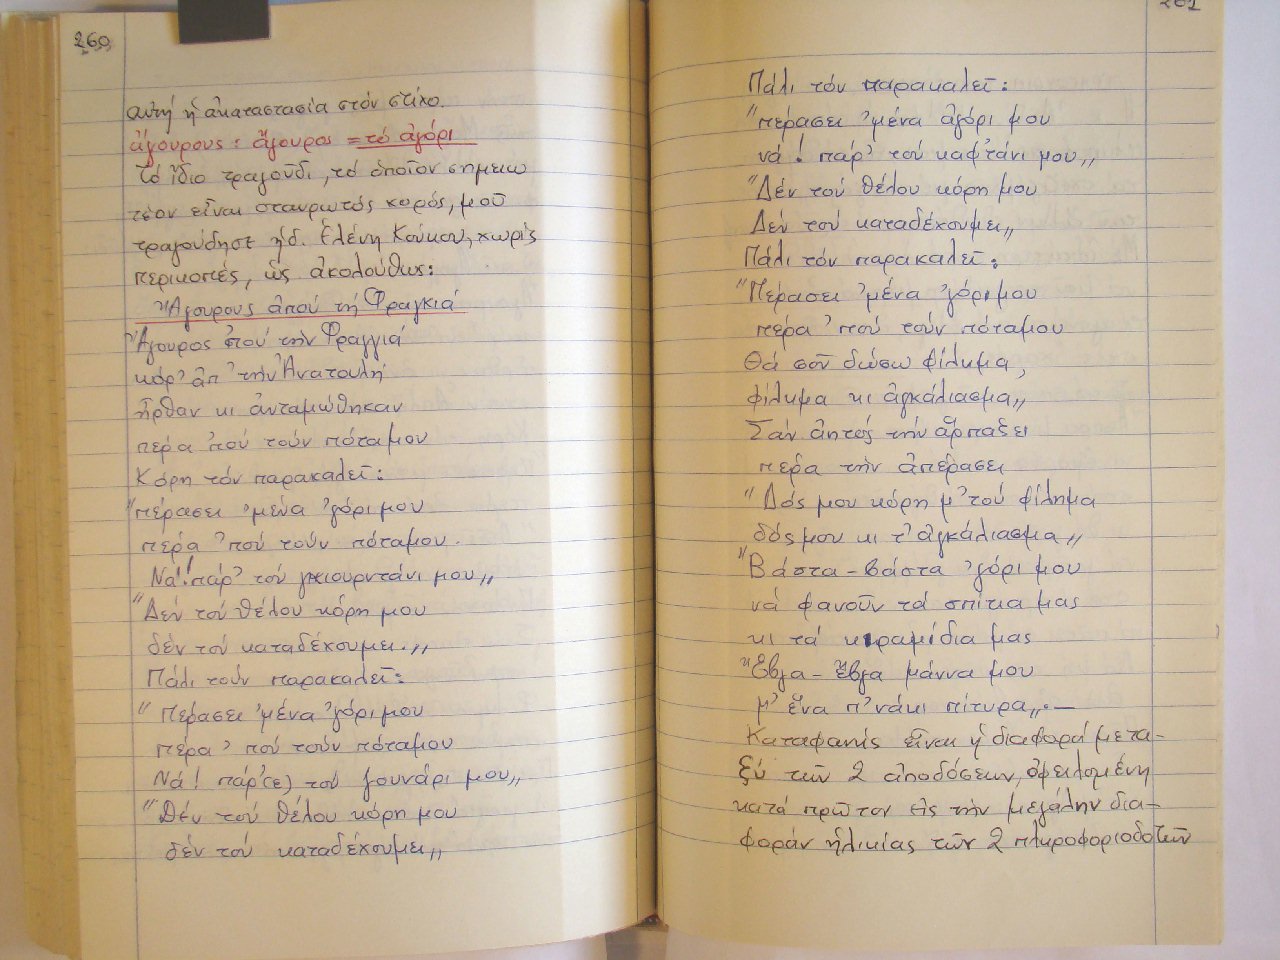 260
αὐτή ἡ ἀκαταστασία στόν στίχο.
ἄγουρους: ἄγουρος = τό ἀγόρι
Τό ἴδιο τραγοῦδι, τό ὁποῖον σημειω
τέον εἶναι σταυρωτός χορός, μοῦ
τραγούδησε ἡ δ. Ἑλένη Κούκου, χωρίς
περικοπές, ὡς ἀκολούθως:
"Ἄγουρους ἀπού τή Φραγκιά
"Ἄγουρος ἀπού τήν Φραγγιά
κόρ' ἀπ' τήν Ἀνατουλή
ἦρθαν κι ἀνταμώθηκαν
πέρα 'πού τούν πόταμου
Κόρη τόν παρακαλεῖ:
"πέρασει 'μένα 'γόρι μου
πέρα 'πού τούν πόταμου.
Νά! πάρ' τού γκιουρντάνι μου,,
"Δέν τού θέλου κόρη μου
δέν τού καταδέχουμει.,,
Πάλι τούν παρακαλεῖ:
"Πέρασει 'μένα 'γόρι μου
πέρα 'πού τούν πόταμου
Νά! πάρ'(ε) τού γουνάρι μου,,
"Δέν τού θέλου κόρη μου
δέν τού καταδέχουμει,,
261
Πάλι τόν παρακαλεῖ:
"πέρασει 'μένα ἀγόρι μου
νά! πάρ' τού καφτάνι μου,,
"Δέν τού θέλου κόρη μου
Δέν τού καταδέχουμει,,
Πάλι τόν παρακαλεῖ:
"Πέρασει 'μένα 'γόρι μου
πέρα 'πού τούν πόταμου
Θά σοῦ δώσω φίλημα,
φίλημα κι ἀγκάλιασμα,,
Σάν ἀητός τήν ἅρπαξει
πέρα τήν ἀπέρασει
"Δός μου κόρη μ' τού φίλημα
δός μου κι τ' ἀγκάλιασμα,,
"Βάστα - βάστα 'γόρι μου
νά φανοῦν τά σπίτια μας
κι τά κιραμίδια μας
"Ἔβγα - ἔβγα μάννα μου
μ' ἕνα π'νάκι πίτυρα,,.—
Καταφανής εἶναι ἡ διαφορά μετα-
ξύ τῶν 2 ἀποδόσεων, ὀφειλομένη
κατά πρῶτον εἰς τήν μεγάλην δια-
φοράν ἡλικίας τῶν 2 πληροφοριοδοτῶν